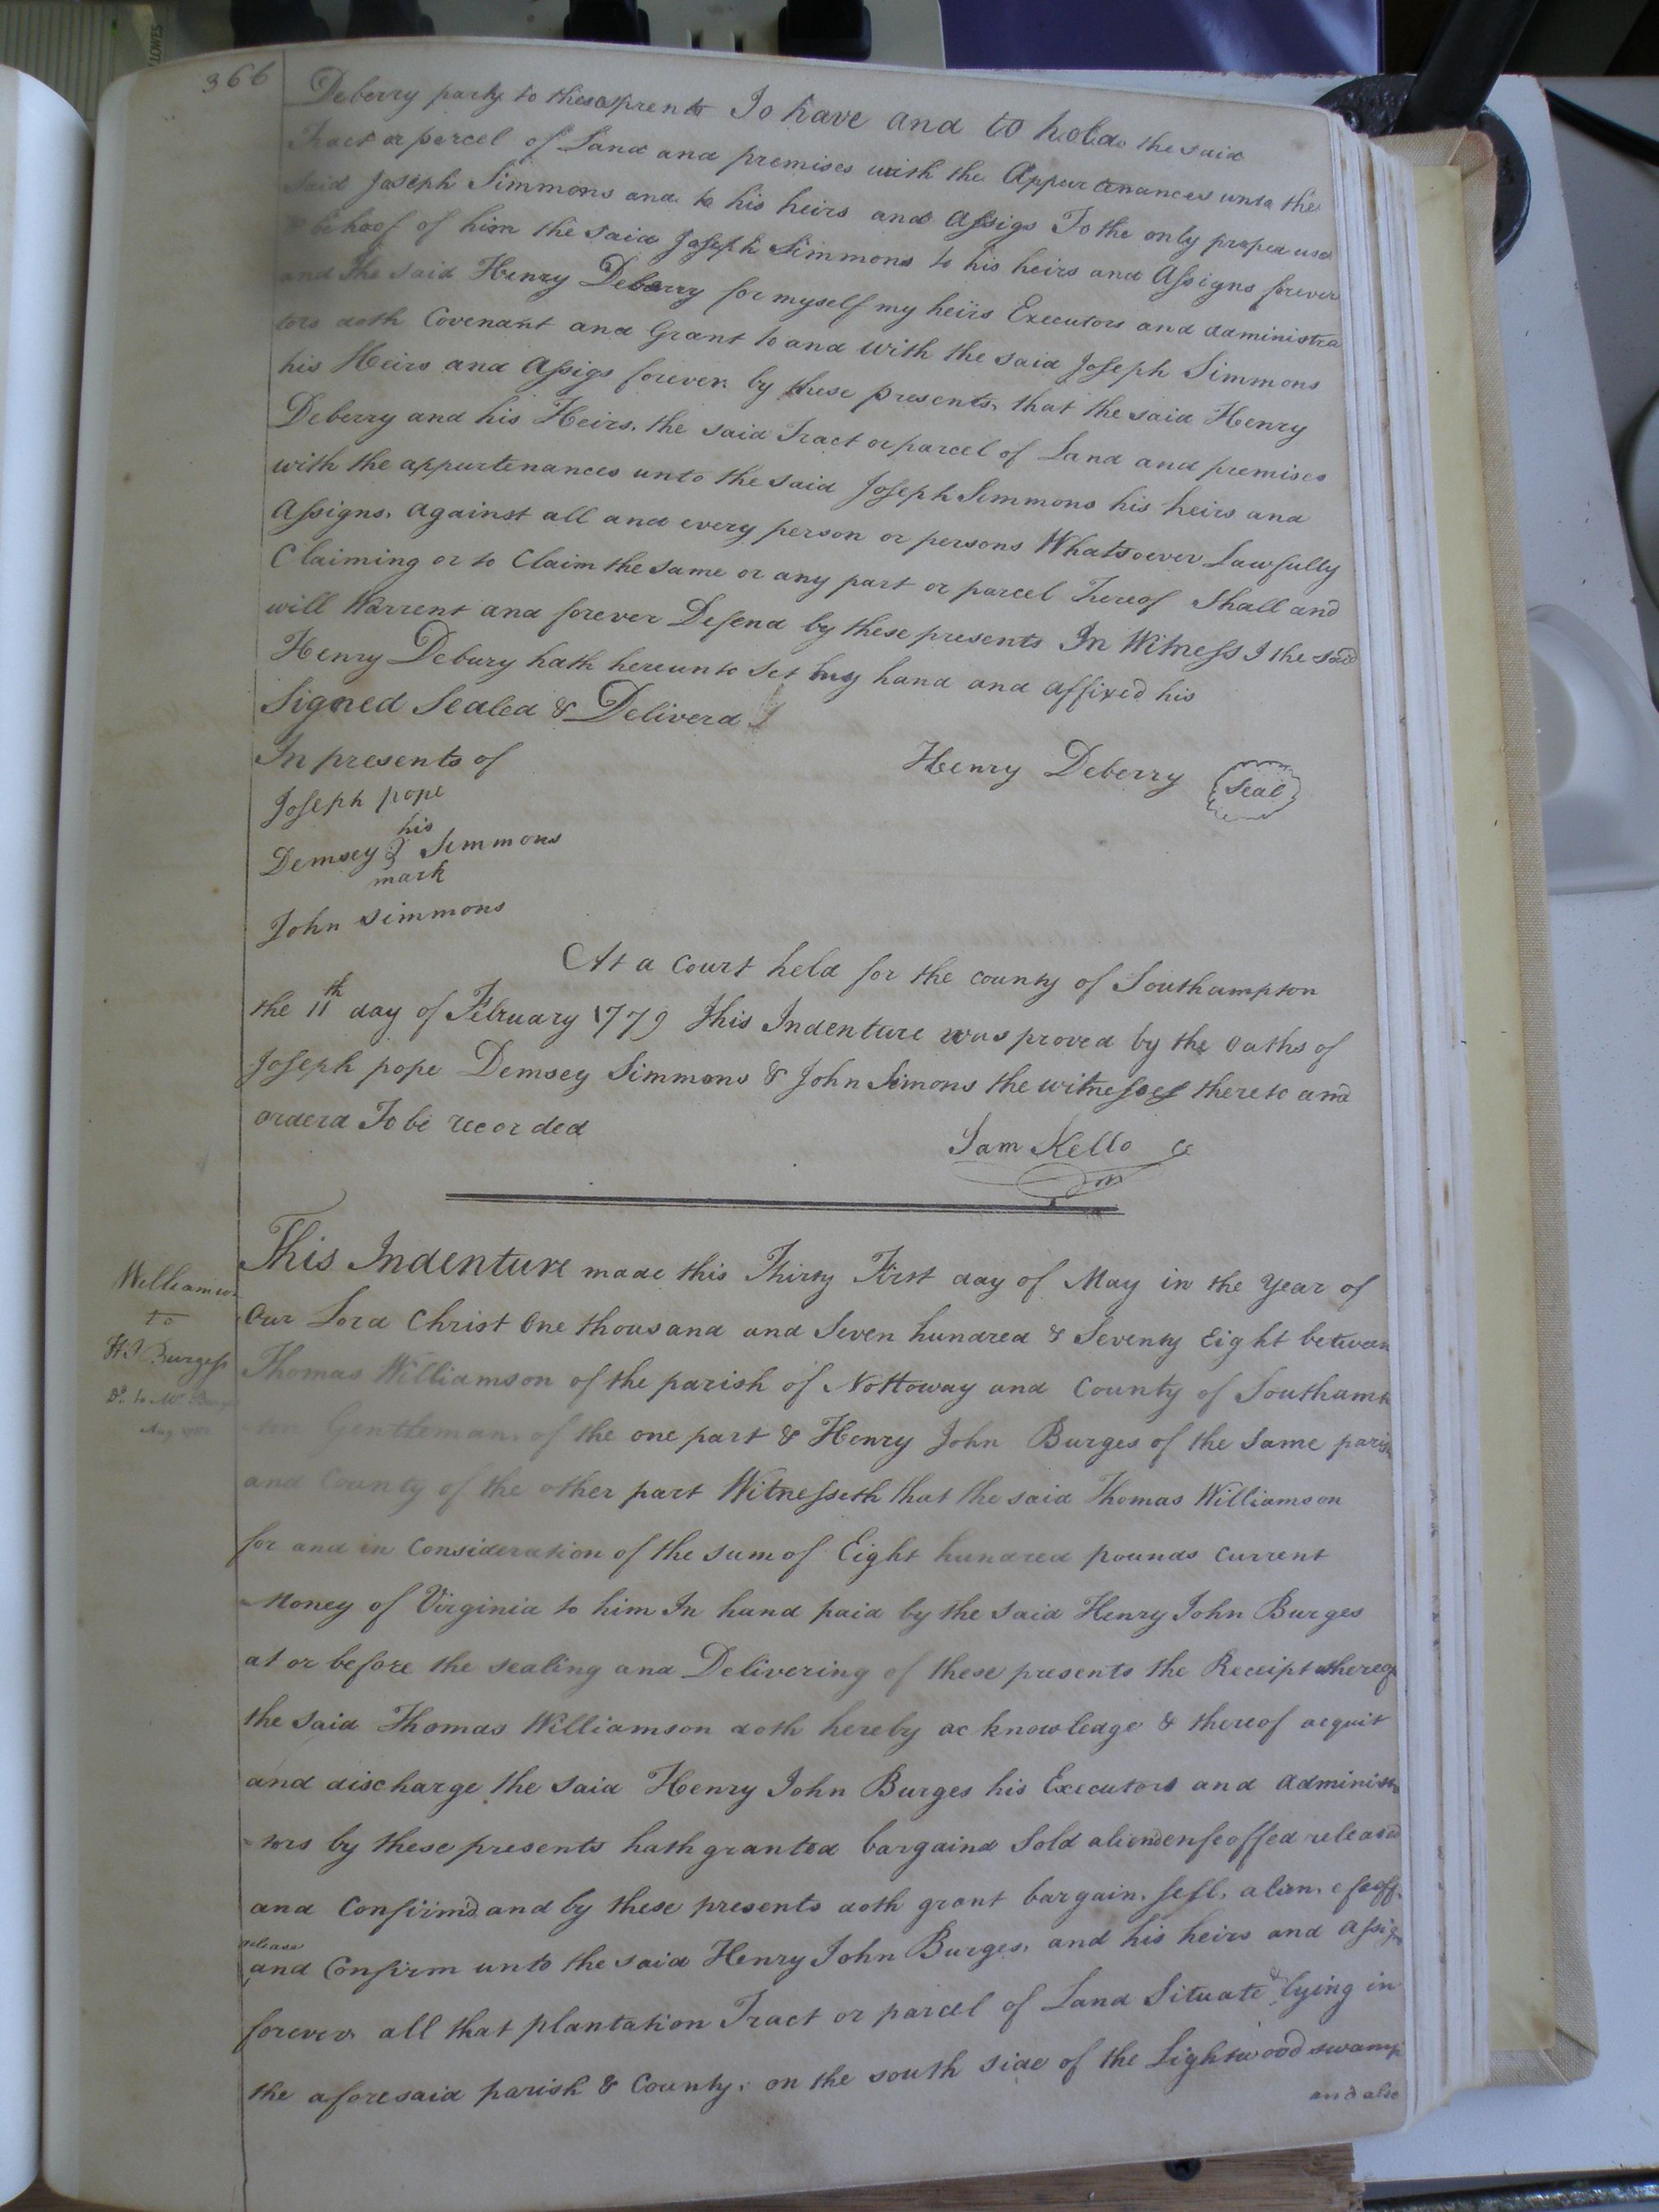 366
Deberry party to these prents To have and to hold the said
Tract or parcel of Land and premises with the Appurtenances unto the
said Joseph Simmons and to his heirs and Assigs To the only proper use
& behoof of him the said Joseph Simmons to his heirs and Assigns forever
and the said Henry Deberry for myself my heirs Executors and administra
tors doth Covenant and Grant to and with the said Joseph Simmons
his Heirs and Assigs forever by these presents, that the said Henry
Deberry and his Heirs, the said Tract or parcel of Land and premises
with the appurtenances unto the said Joseph Simmons his heirs and
Assigns, against all and every person or persons Whatsoever Lawfully
Claiming or to Claim the same or any part or parcel Thereof Shall and
will Warrent and forever Defend by these presents In Witness I the said
Henry Debury hath hereunto set my hand and affixed his
Signed Sealed & Deliverd
In presents of
Henry Deberry Seal
Joseph pope
his
Demsey Simmons
mark
John Simmons
At a Court held for the county of Southampton
the 11th day of February 1779 This Indenture was proved by the oaths of
Joseph pope Demsey Simmons & John Simons the witnesses thereto and
orderd To be recorded
Sam Kello
Williamson
to
H J Burgess
Do. to Mr
This Indenture made this Thirty First day of May in the Year of
Our Lord Christ One thousand and Seven hundred & Seventy Eight between
Thomas Williamson of the parish of Nottoway and County of Southamp
ton Gentleman of the one part & Henry John Burges of the Same parish
and County of the other part Witnesseth that the said Thomas Williamson
for and in Consideration of the sum of Eight hundred pounds Current
Money of Virginia to him In hand paid by the said Henry John Burges
at or before the sealing and Delivering of these presents the Receipt whereof
the said Thomas Williamson doth hereby acknowledge & thereof acquit
and discharge the said Henry John Burges his Executors and administra
-tors by these presents hath granted bargaind Sold aliend enfeoffed released
and Confirmd and by these presents doth grant bargain, sell, alien, efeoff
release
and Confirm unto the said Henry John Burges, and his heirs and assigns
forever all that plantation Tract or parcel of Land Situate & lying in
the aforesaid parish & County, on the south side of the Lightwood swamp
and also